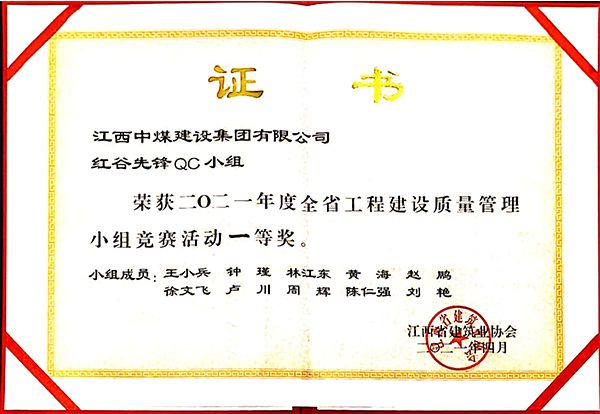 证 书
江西中煤建设集团有限公司
红谷先锋QC小组
荣获二〇二一年度全省工程建设质量管理
小组竞赛活动一等奖。
小组成员：王小兵 钟 瑾 林江东 黄 海 赵 鹏
徐文飞 卢 川 周 辉 陈仁强 刘 艳
江西省建筑业协会
二〇二一年四月